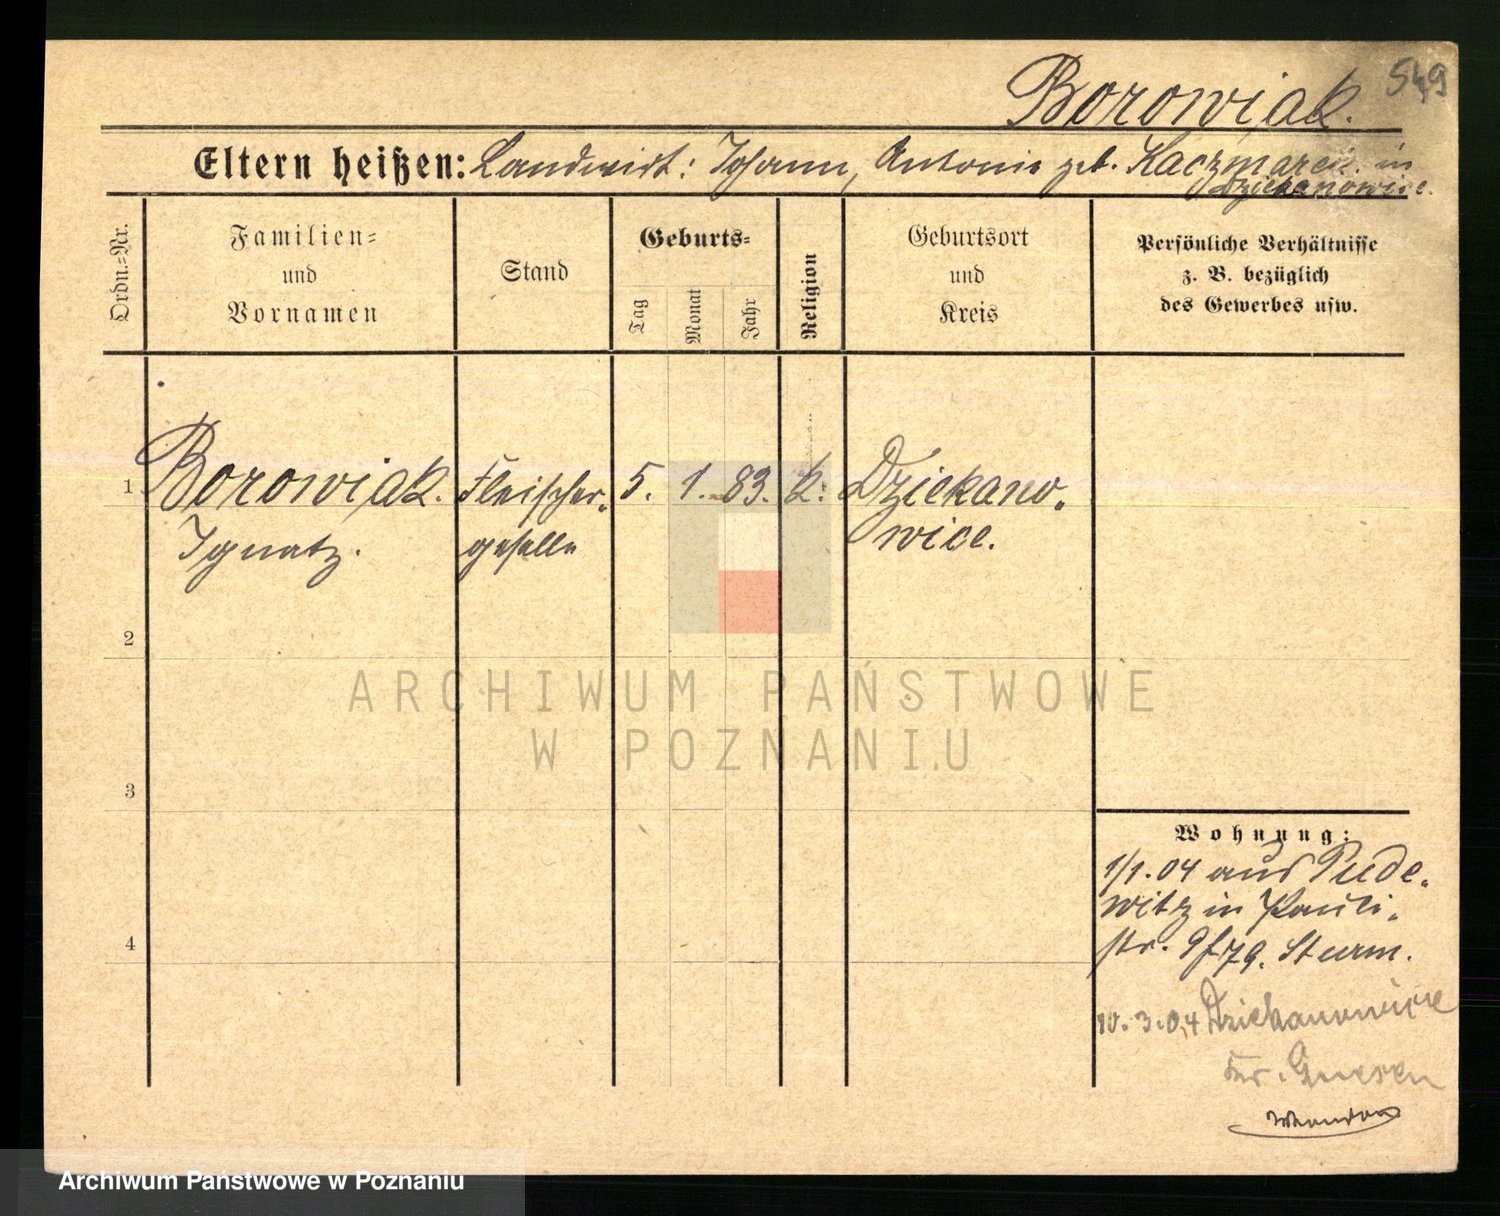 549
Borowiak.
Eltern heißen: Landwirt: Johann, Antonie geb. Kaczmarek in
Dziekanowice.
Ordn.=Nr.
Familien=
und
Vornamen
Stand
Geburts=
Tag
Monat
Jahr
Religion
Geburtsort
und
Kreis
Persönliche Verhältnisse
z. B. bezüglich
des Gewerbes usw.
1 Borowiak. Fleischer- 5. 1. 83. k. Dziekano-
Ignatz. geselle wice.
2
3
4
Wohnung:
1/1.04 aus Pude-
witz in Pauli-
str. 9 f 79. Sturm.
10.3.04 Dziekanowice
Kr. Gnesen
ARCHIWUM PAŃSTWOWE
W POZNANIU
Archiwum Państwowe w Poznaniu